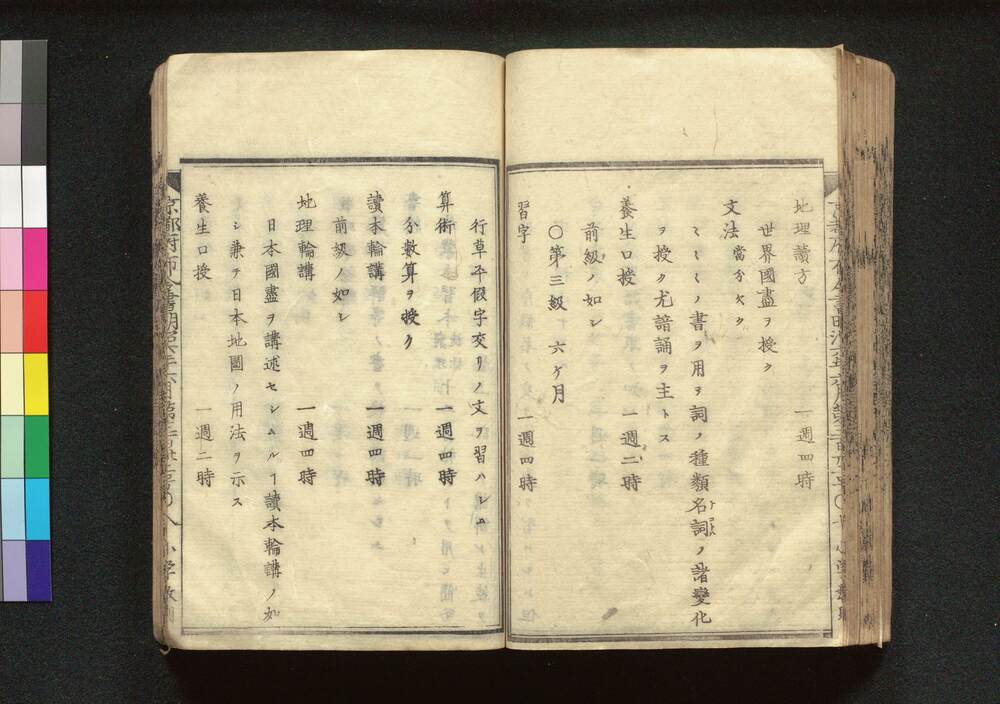 地理讀方　一週四時
世界國盡ヲ授ク
文法　當分欠ク
ミミミノ書ヲ用ヲ詞ノ種類名詞ノ諸變化
ヲ授ク尤諳誦ヲ主トス
養生口授　一週二時
前級ノ如シ
〇第三級　六ケ月
習字　一週四時
行草平假字交リノ文ヲ習ハシム
算術　一週四時
分數算ヲ授ク
讀本輪講　一週四時
前級ノ如シ
地理輪講　一週四時
日本國盡ヲ講述セシムルヿ讀本輪講ノ如
シ兼テ日本地圖ノ用法ヲ示ス
養生口授　一週二時